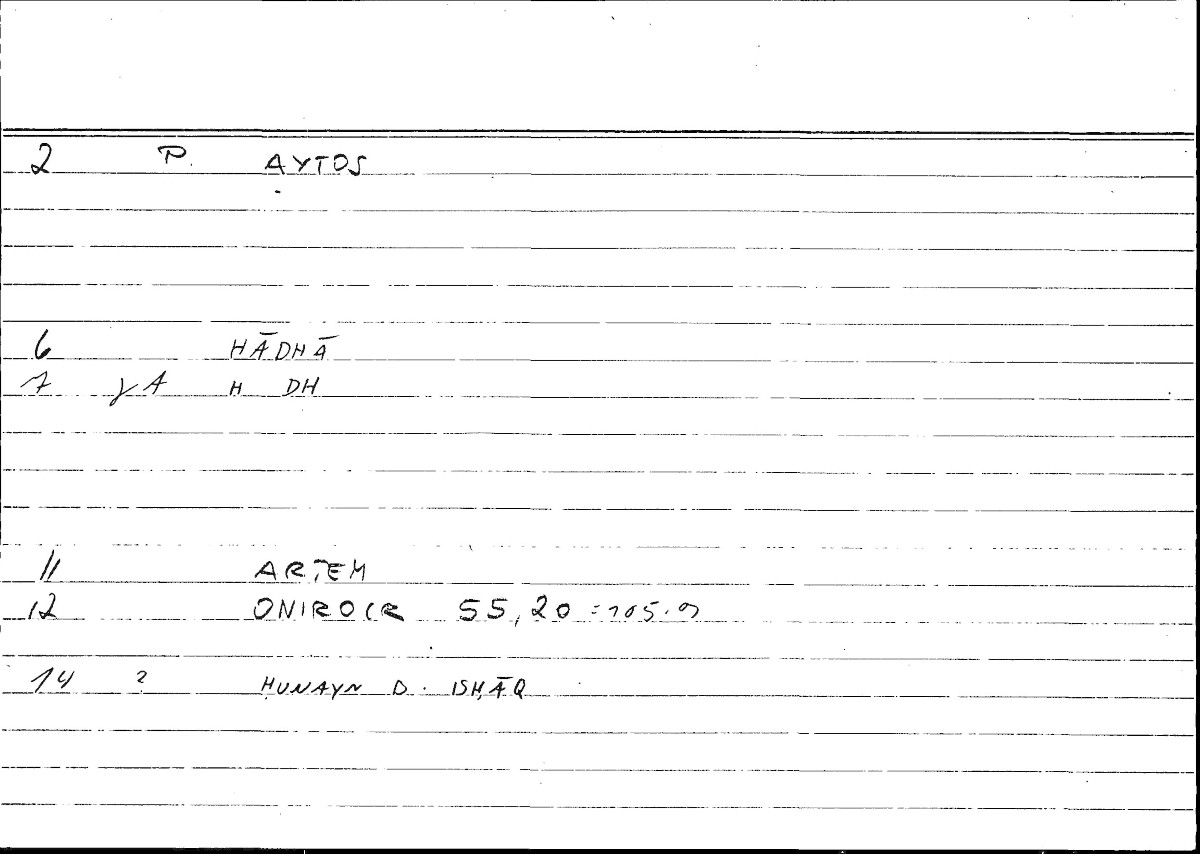 2 P. AYTOS
6 HĀDHĀ
7 γA H DH
11 ARTEM
12 ONIROCR 55,20 = 105.9
14 ? ḤUNAYN D. ISḤĀQ